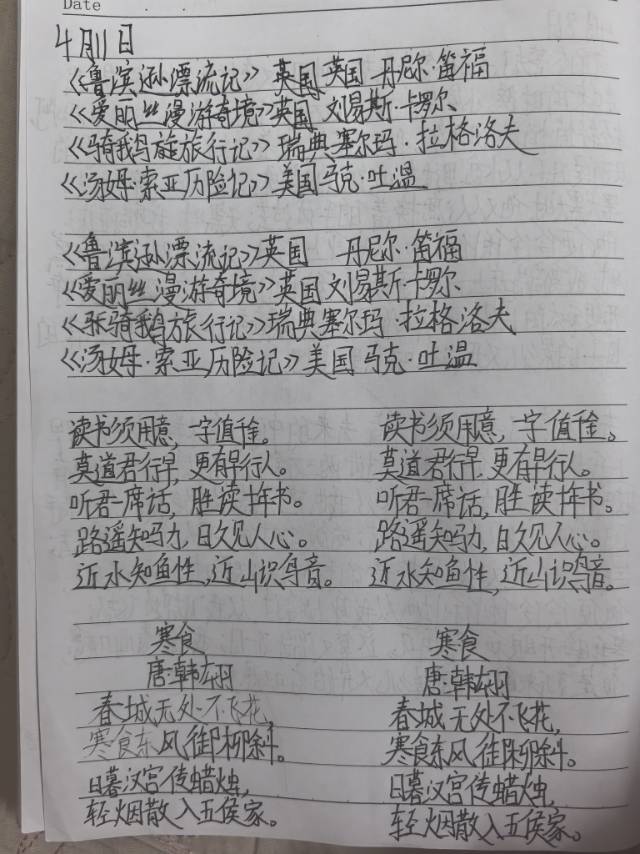 Date
4月11日
《鲁滨逊漂流记》 英国 英国 丹尼尔·笛福
《爱丽丝漫游奇境》英国 刘易斯·卡罗尔
《骑鹅旅行记》瑞典塞尔玛·拉格洛夫
《汤姆·索亚历险记》美国马克·吐温
《鲁滨逊漂流记》英国 丹尼尔·笛福
《爱丽丝漫游奇境》英国刘易斯·卡罗尔
骑鹅旅行记》瑞典塞尔玛·拉格洛夫
《汤姆·索亚历险记》美国马克·吐温
读书须用意,一字值千金。 读书须用意,一字值千金。
莫道君行早,更有早行人。 莫道君行早,更有早行人。
听君一席话,胜读十年书。 听君一席话,胜读十年书。
路遥知马力,日久见人心。 路遥知马力,日久见人心。
近水知鱼性,近山识鸟音。 近水知鱼性,近山识鸟音。
寒食 寒食
唐:韩翃 唐:韩翃
春城无处不飞花, 春城无处不飞花,
寒食东风御柳斜。 寒食东风御柳斜。
日暮汉宫传蜡烛, 日暮汉宫传蜡烛,
轻烟散入五侯家。 轻烟散入五侯家。